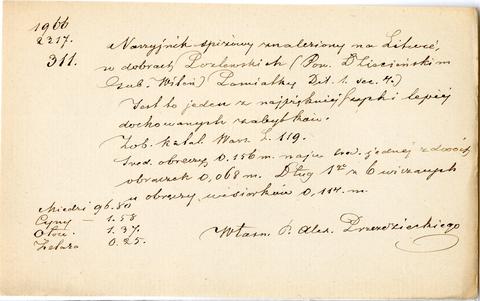 1966
2217.
311.
Naszyjnik spiżowy znaleziony na Litwie,
w dobrach Pozlewskich (Pow. Dzisieńskim
gub. Wileń) Pamiątkę Dit. 1. sec. 7.)
Jest to jeden z najpiękniejszych i lepiej
dochowanych zabytków.
Zob. katal. Warsz. L. 119.
Śred. obręczy 0.156 m. najw. śred. jednej z dwóch
obrączek 0,068 m. Dług. 1ej z 6 wiszących
u obręczy wisiorków 0,117. m.
Miedzi 96.80
Cyny — 1.58
Ołow. 1.37.
Żelaza 0.25.
Własn. P. Alex. Przezdzieckiego